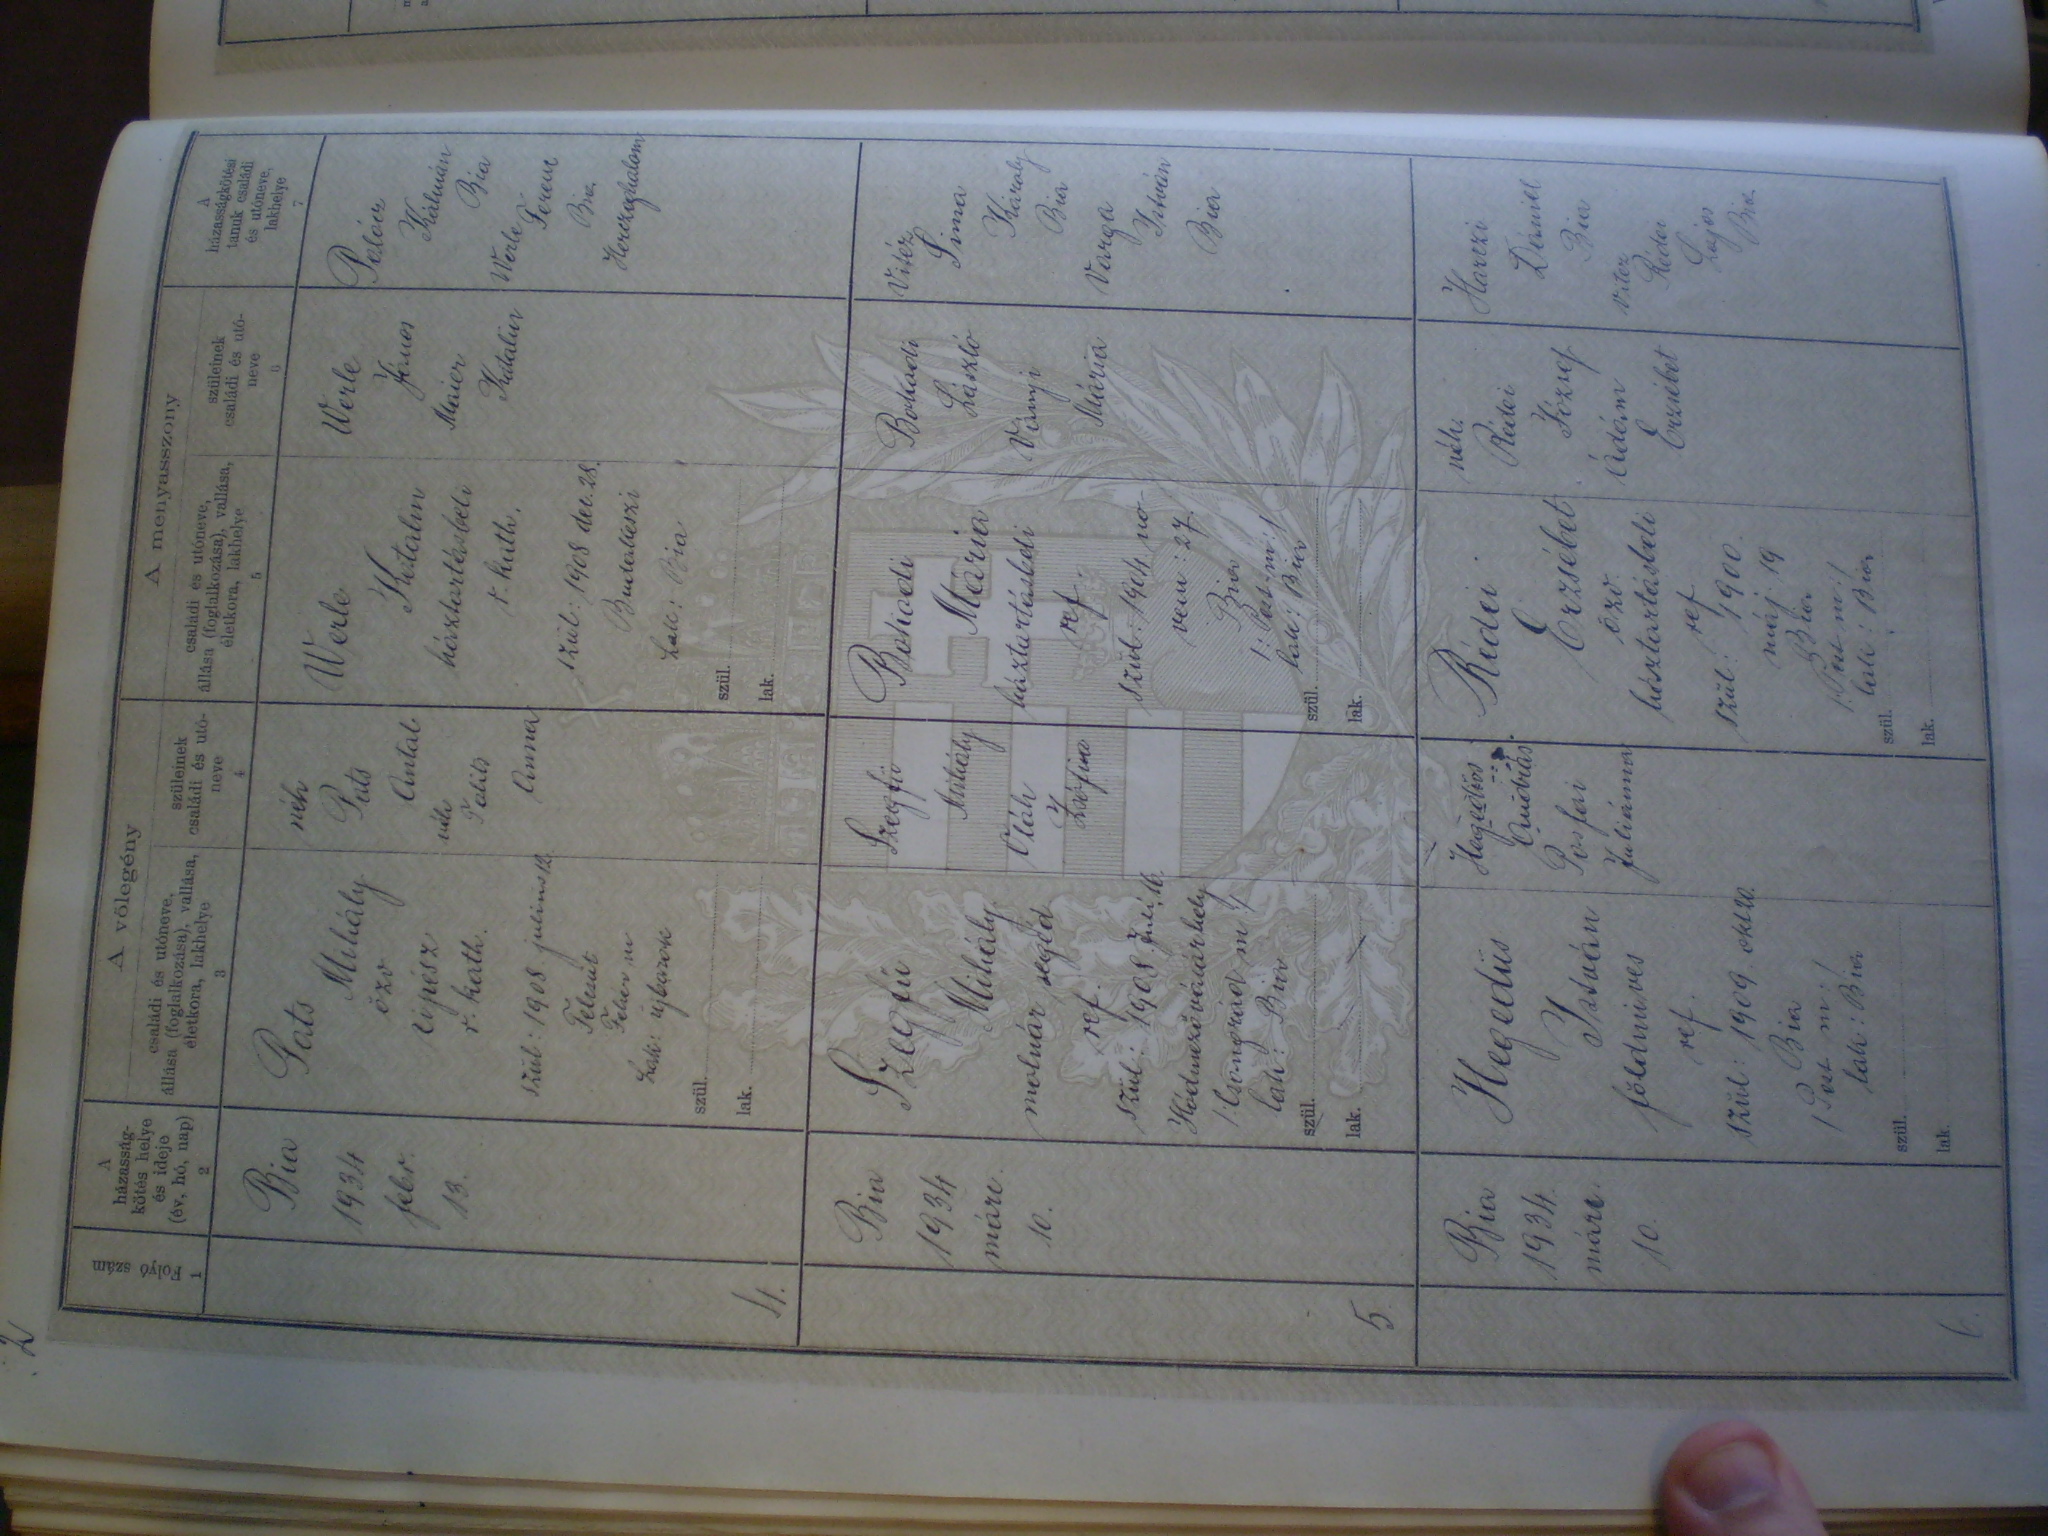 2
A
házasság-
kötés helye
és ideje
(év, hó, nap)
2
Folyó
szám
1
A vőlegény
családi és utóneve,
állása (foglalkozása), vallása,
életkora, lakhelye
3
szüleinek
családi és utó-
neve
4
A menyasszony
családi és utóneve,
állása (foglalkozása), vallása,
életkora, lakhelye
5
szüleinek
családi és utó-
neve
6
A
házasságkötési
tanuk családi
és utóneve,
lakhelye
7
4.
Bia
1934
febr.
13.
Pats
Mihály
özv
cipész
r. kath.
szül: 1908 julius 12.
Fehér m
Lak: ujbarok
szül.
lak.
néh
Pats
Antal
néh
Anna
Werle
Katalin
háztartásbeli
r. kath.
szül: 1908 dec. 28.
Lak: Bia
szül.
lak.
Werle
János
Maier
Katalin
Kálmán
Bia
Werle
Ferenc
Bia
Herczeghalom
5.
Bia
1934
márc.
10.
Szegfű
Mihály
molnár segéd
ref.
szül: 1908. Juli. 16.
Hódmezővásárhely
/: Csongrád m :/
lak: Bia
szül.
lak.
Szegfű
Mihály
Oláh
Zsófia
Bohodi
Mária
háztartásbeli
ref.
szül: 1904 no-
vem: 27.
Bia
/: Pest m: /
lak: Bia
szül.
lak.
Bohodi
László
Ványi
Mária
Vitéz
Sima
Károly
Bia
Varga
István
Bia
6.
Bia
1934.
márc.
10.
Hegedüs
István
földmíves
ref.
szül: 1909. okt 20.
Bia
/ Pest m: /
lak: Bia
szül.
lak.
Hegedüs
András
Juliánna
Rédei
Erzsébet
özv.
háztartásbeli
ref
szül: 1900.
máj. 19
Bia
/: Pest m: /
lak: Bia
szül.
lak.
néh.
Rédei
József
Ádám
Erzsébet
Dániel
Bia
vitéz
Rédei
Lajos
Bia